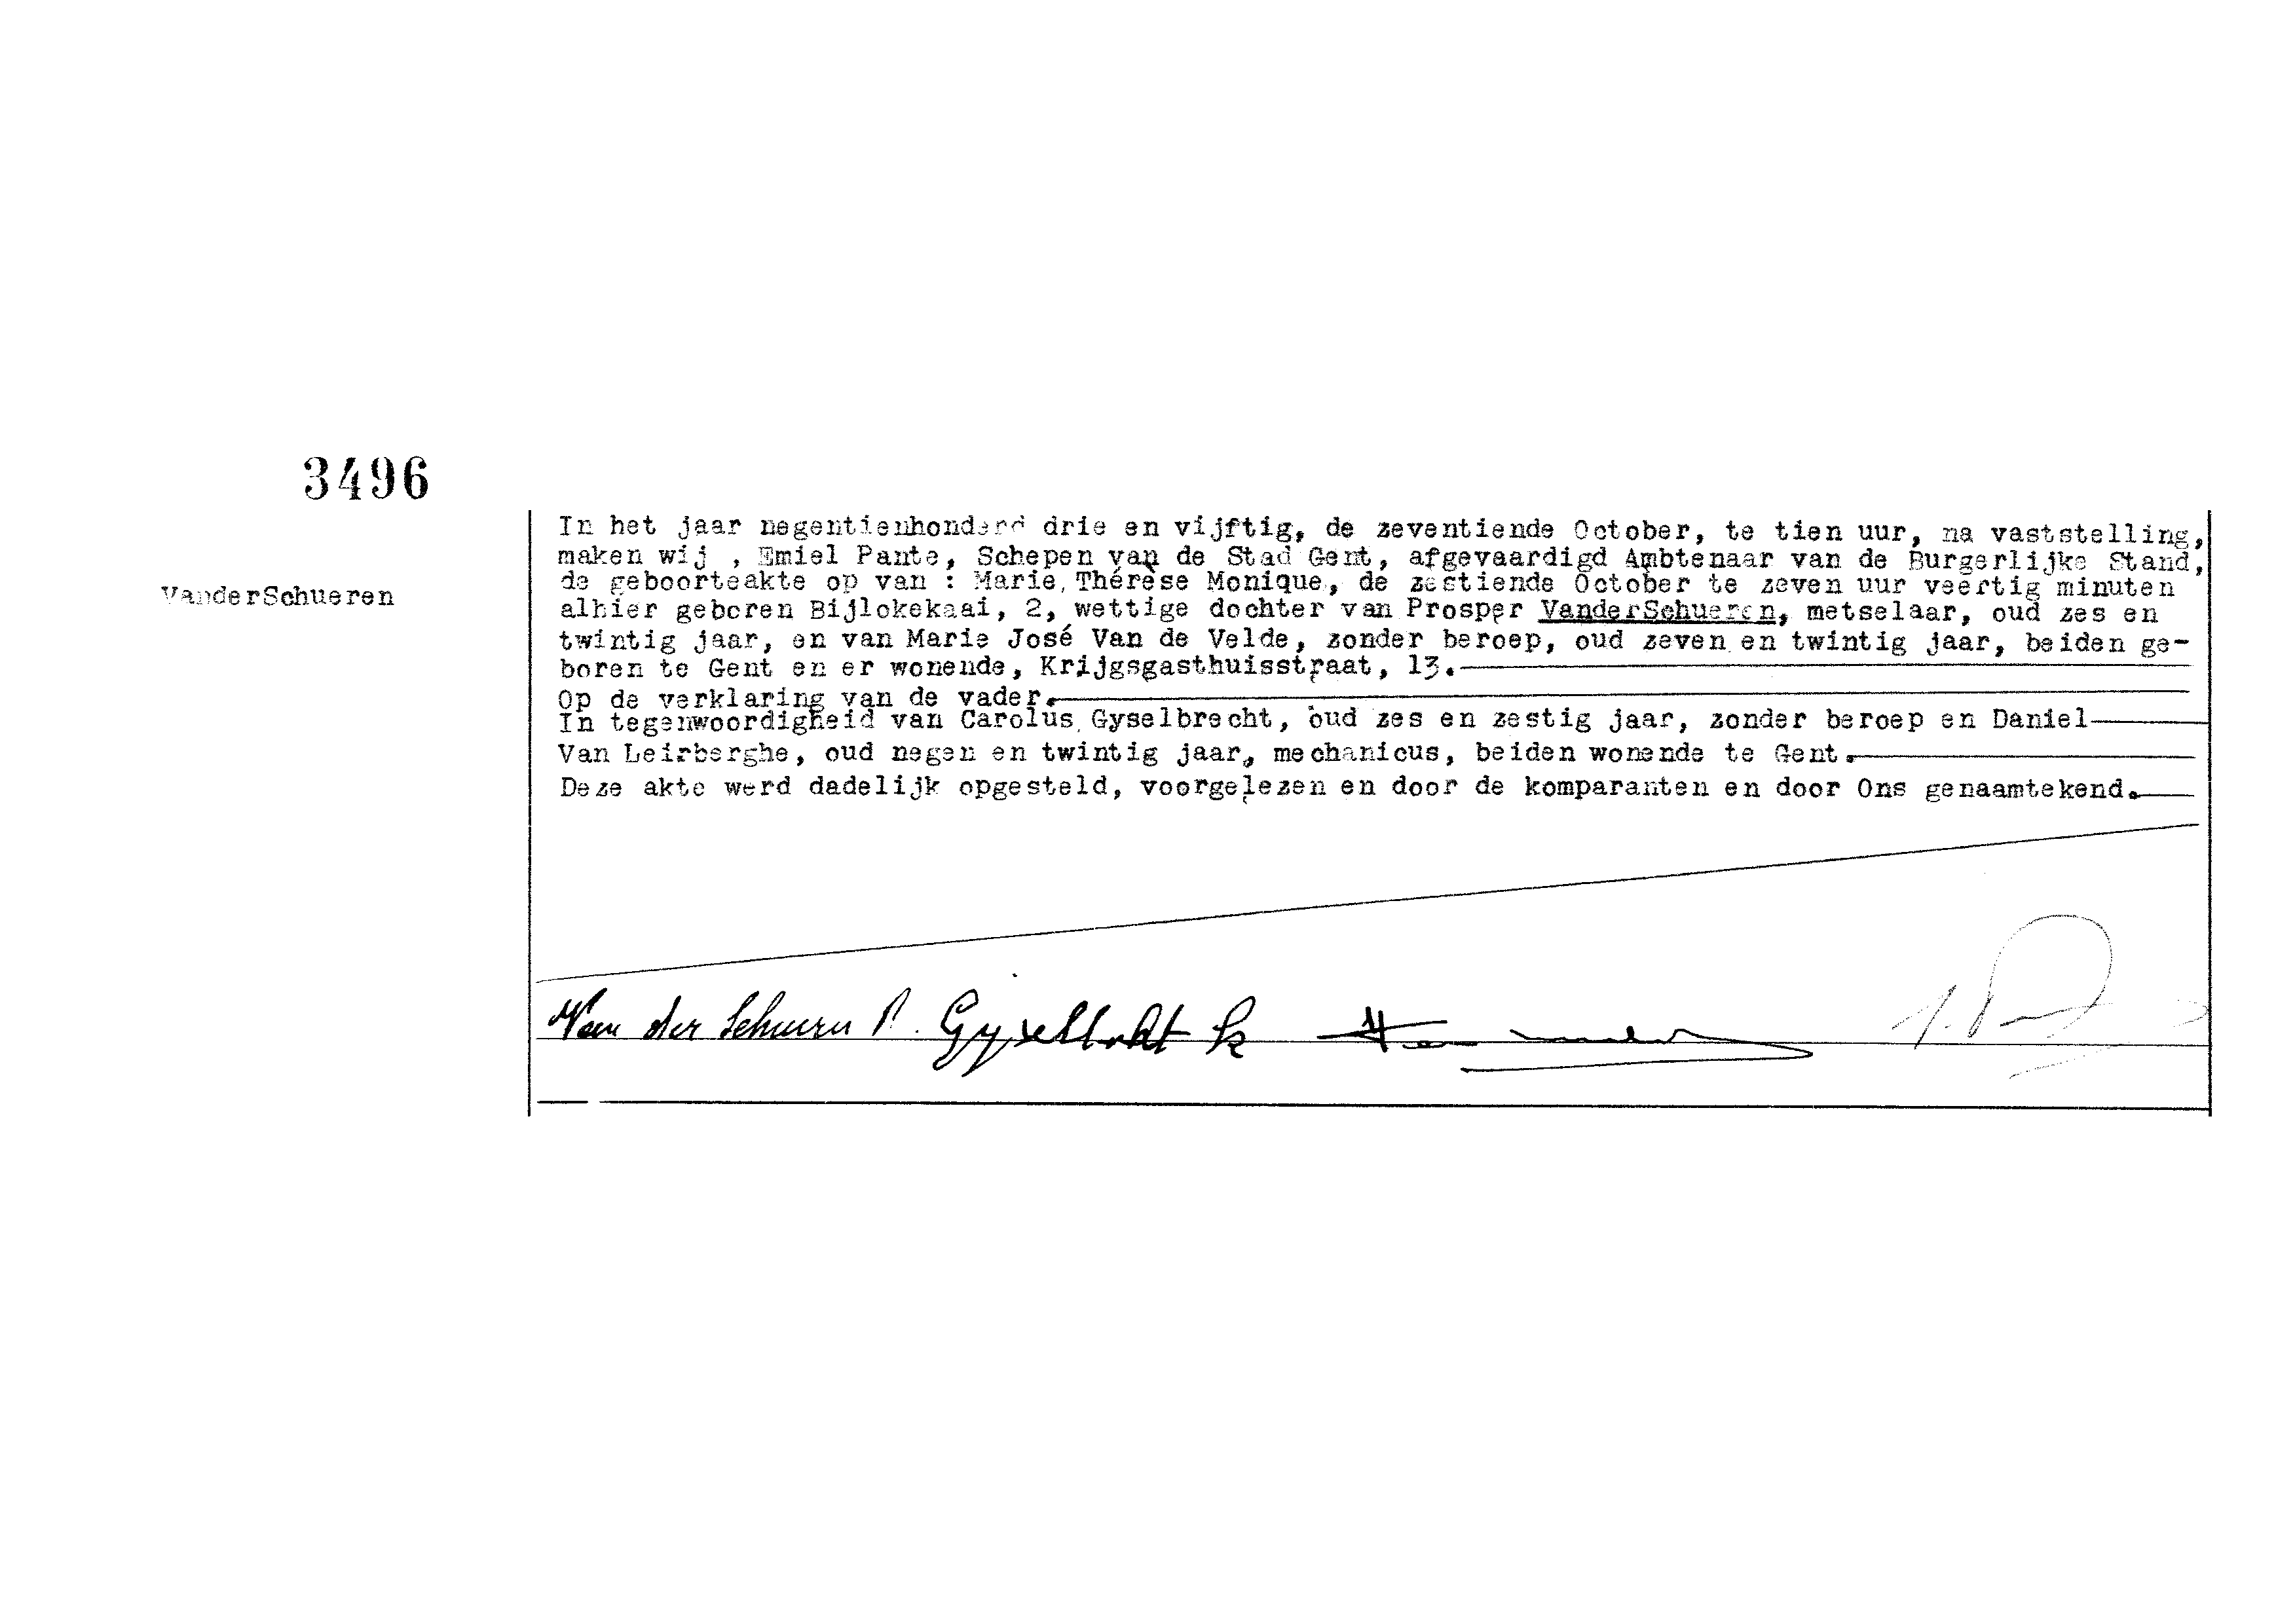 3496
VanderSchueren
In het jaar negentienhonderd drie en vijftig, de zeventiende October, te tien uur, na vaststelling,
maken wij , Emiel Pante, Schepen van de Stad Gent, afgevaardigd Ambtenaar van de Burgerlijke Stand,
de geboorteakte op van : Marie Thérèse Monique, de zestiende October te zeven uur veertig minuten
alhier geboren Bijlokekaai, 2, wettige dochter van Prosper VanderSchueren, metselaar, oud zes en
twintig jaar, en van Marie José Van de Velde, zonder beroep, oud zeven en twintig jaar, beiden ge-
boren te Gent en er wonende, Krijgsgasthuisstraat, 13.
Op de verklaring van de vader.
In tegenwoordigheid van Carolus Gyselbrecht, oud zes en zestig jaar, zonder beroep en Daniel
Van Leirberghe, oud negen en twintig jaar, mechanicus, beiden wonende te Gent.
Deze akte werd dadelijk opgesteld, voorgelezen en door de komparanten en door Ons genaamtekend.
Van der Schueren P. Gyselbrecht K